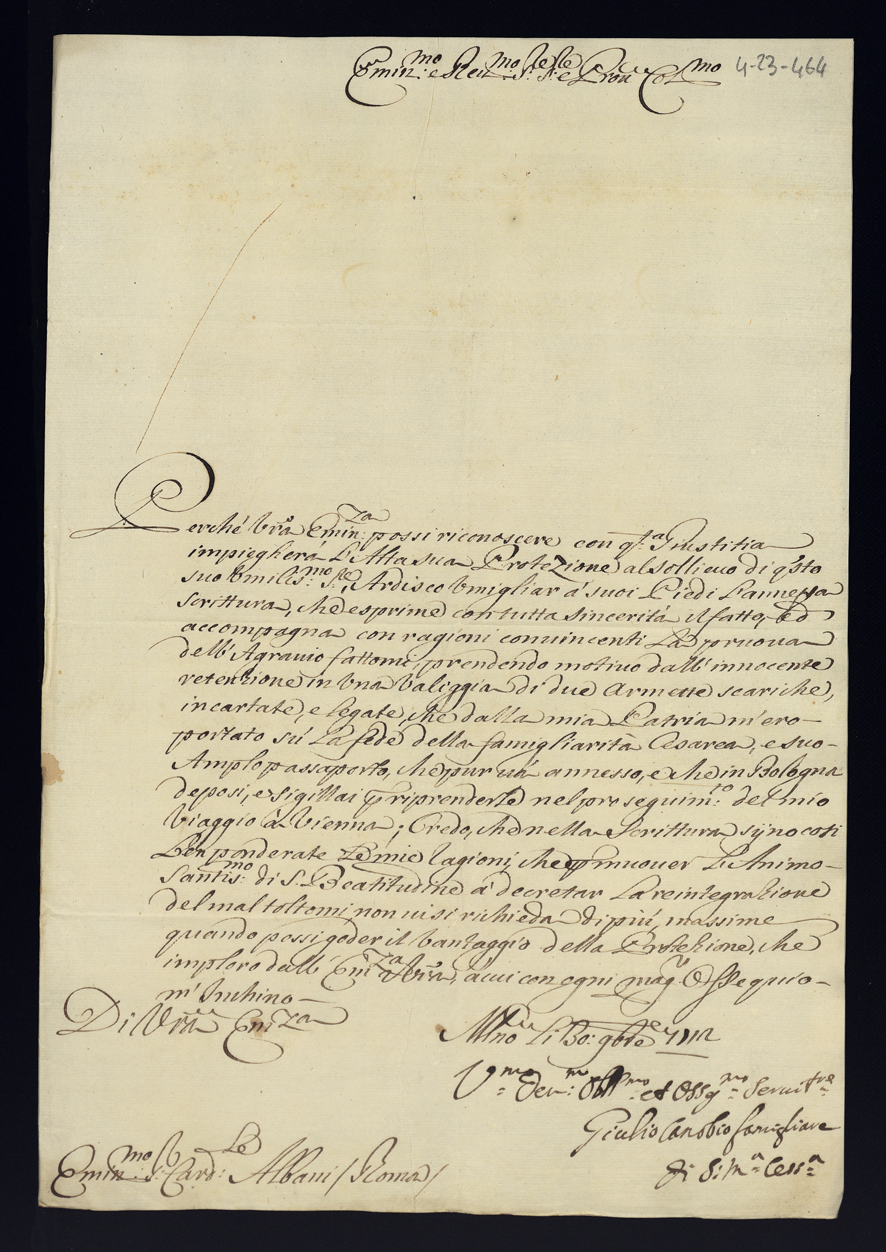 Emin.mo e Reu.mo Sig.re Sig.re e Pron Col.mo 4-23-464
Perché Vrã Emin.za possi riconoscere con q.ta Giustitia
impiegherá L'Alta sua Protezione al sollieuo di q'sto
suo Vmilis.mo S.re, Ardisco Vmigliar á suoi Piedi L'annessa
Scrittura, che esprime con tutta sincerità il fatto, ed
accompagna con ragioni conuincenti La pruoua
dell'Agrauio fattomi, prendendo motiuo dall'innocente
retenzione in Vna Valiggia di due Armette scariche,
incartate, e legate, che dalla mia Patria m'ero
portato sú La fede della famigliarità Cesarea, e suo
Amplo passaporto, che pur uá annesso, e che in Bologna
deposi, e sigillai p riprenderle nel proseguim.to del mio
Viaggio á Vienna; Credo, che nella Scrittura sijno cosi
Ben ponderate Le mie ragioni, che p muouer L'Animo
Santis.mo di S. Beatitudine á decretar La reintegrazione
del mal toltomi non ui si richieda di piú, massime
quando possi goder il Vantaggio della Protezione, che
imploro dall' Em.za Vrã, á cui con ogni mag.r Ossequio
m' Inchino
Di Vrã Em.za
Mlno Li 30: 9bre 1712
V.mo Deu.mo Obl.mo et Ossq.mo Seruit.re
Giulio Canobio famigliare
di S: M.a Ces.a
Emin.mo S. Card.le Albani / Roma /